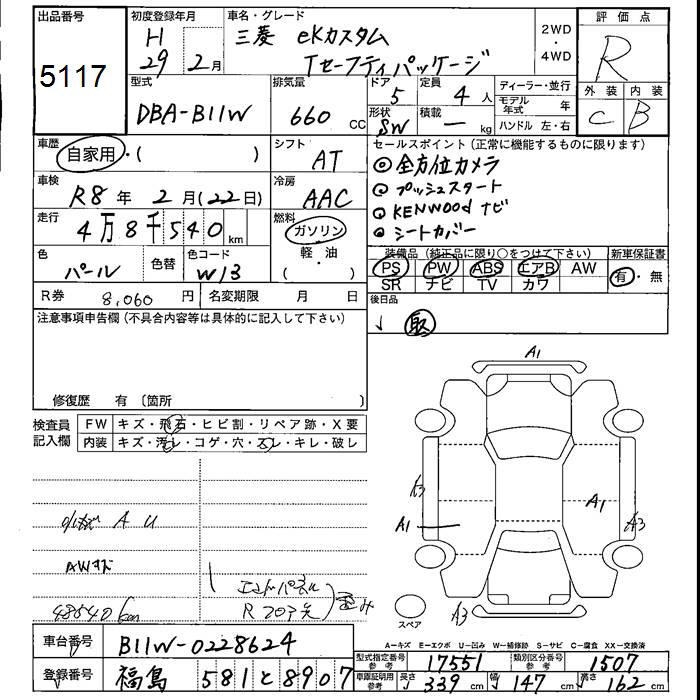 出品番号 初度登録年月 車名・グレード 2WD・4WD 評価点
5117 H 29年 2月 三菱 eKカスタム Tセーフティパッケージ R
型式 排気量 ドア 定員 ディーラー・並行 外装 内装
DBA-B11W 660 CC 5 4人 モデル年式 年 C B
形状 積載 ハンドル 左・右
SW ー kg
車歴 シフト セールスポイント(正常に機能するものに限ります)
自家用・( ) AT ◎全方位カメラ
車検 冷房 ◎プッシュスタート
R8年 2月(22日) AAC ◎KENWOOD ナビ
走行 燃料 ◎シートカバー
4万8千540km ガソリン・軽・油( )
色 色替 色コード 装備品(純正品に限り○をつけて下さい) 新車保証書
パール W13 PS PW ABS エアB AW 有・無
SR ナビ TV カワ
R券 8,060円 名変期限 月 日 後日品
注意事項申告欄(不具合内容等は具体的に記入して下さい) 取
修復歴 有〔箇所
検査員記入欄 FW キズ・飛石・ヒビ割・リペア跡・X要
内装 キズ・汚レ・コゲ・穴・スレ・キレ・破レ
A1
A3 A1 A1 A3
A U
AWキズ
48540km
エンドパネル
R フロア
歪み
A3
スペア
A-キズ E-エクボ U-凹み W-補修跡 S-サビ C-腐食 XX-交換済
車台番号 B11W-0228624 型式指定番号 参考 17551 類別区分番号 参考 1507
登録番号 福島 581 と 8907 車庫証明用 参考 長さ 339cm 幅 147cm 高さ 162cm